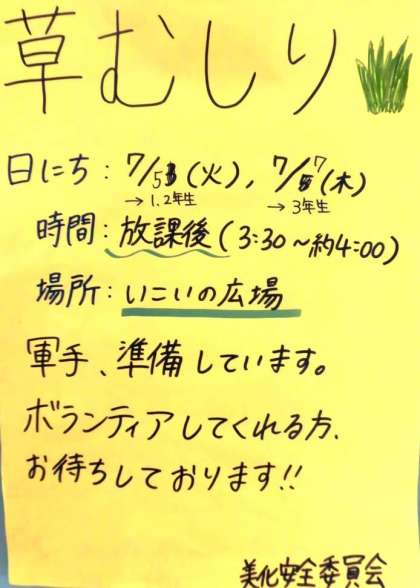 草むしり
日にち：7/5(火)，7/7(木)
→1.2年生 →3年生
時間：放課後(3:30～約4:00)
場所：いこいの広場
軍手、準備しています。
ボランティアしてくれる方、
お待ちしております!!
美化安全委員会